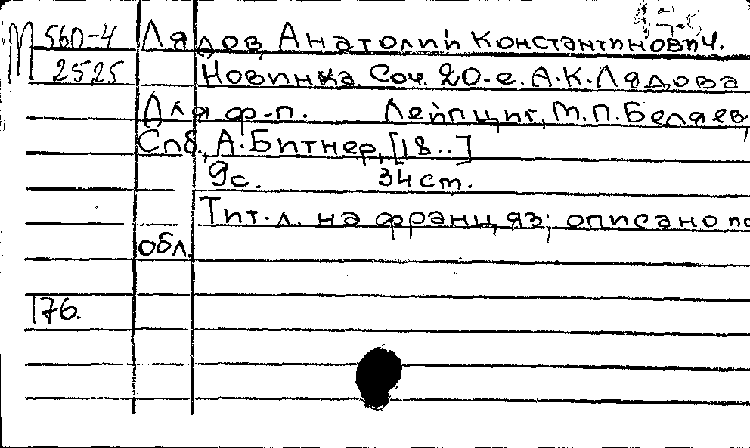 М 560-4 Лядов, Анатолий Константинович.
2525 Новинка. Соч. 20-е. А.К. Лядова
Для ф-п. Лейпциг, М.П. Беляев,
Спб., А. Битнер, [18..]
9с. 34 cm.
Тит. л. на франц. яз; описано по
обл.
176.